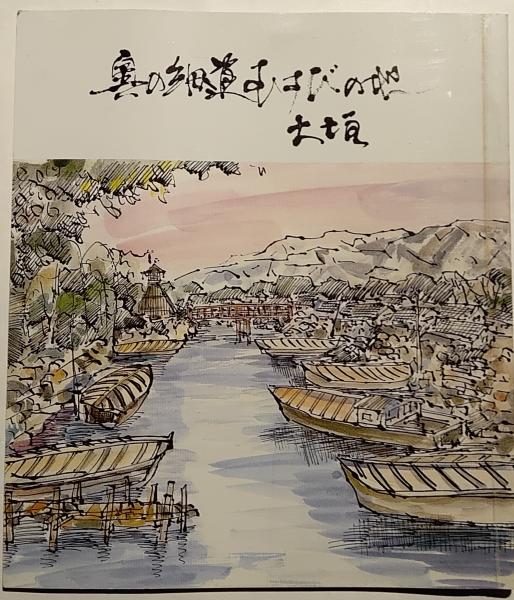 奥の細道むすびの地
大垣